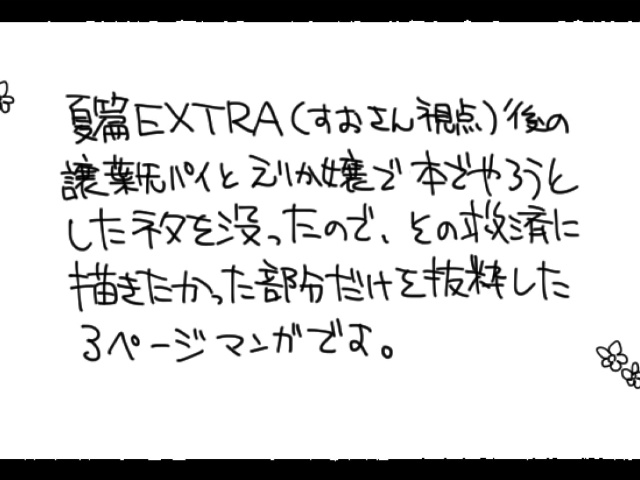 夏篇EXTRA(すおさん視点)後の
譲葉パイとえりか嬢で本でやろうと
したネタを没ったので、その救済に
描きたかった部分だけを抜粋した
3ページマンガです。